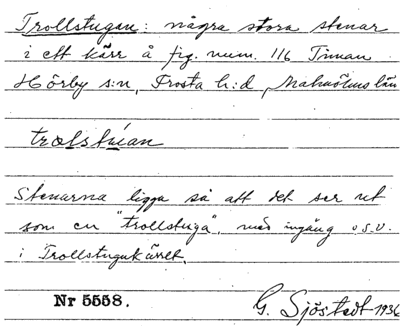 Trollstugan: några stora stenar
i ett kärr å fig. num. 116 Tinnan
Hörby s:n, Frosta h:d, Malmöhus län
Stenarna ligga så att det ser ut
som en "trollstuga", med ingång o.s.v.
i Trollstugukärret.
Nr 5558.
G. Sjöstedt 1936